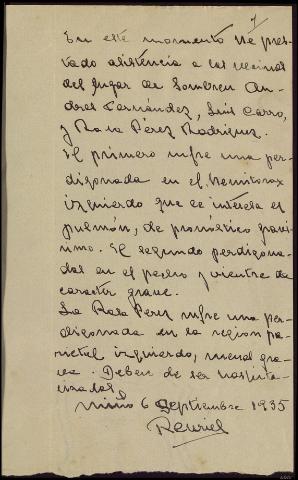 En este momento he pres-
tado asistencia a los vecinos
del lugar de Sombreu An-
dres Fernández, Luis Carro,
y Rosa Pérez Rodriguez.
El primero sufre una per-
digonada en el hemitorax
izquierdo que le interesa el
pulmón, de pronóstico gravi-
simo. El segundo perdigona-
das en el pecho y vientre de
caracter grave.
La Rosa Perez sufre una per-
digonada en la region pa-
rietal izquierdo, menos gra-
ve. Deben de ser hospita-
lizados
6 Septiembre 1935